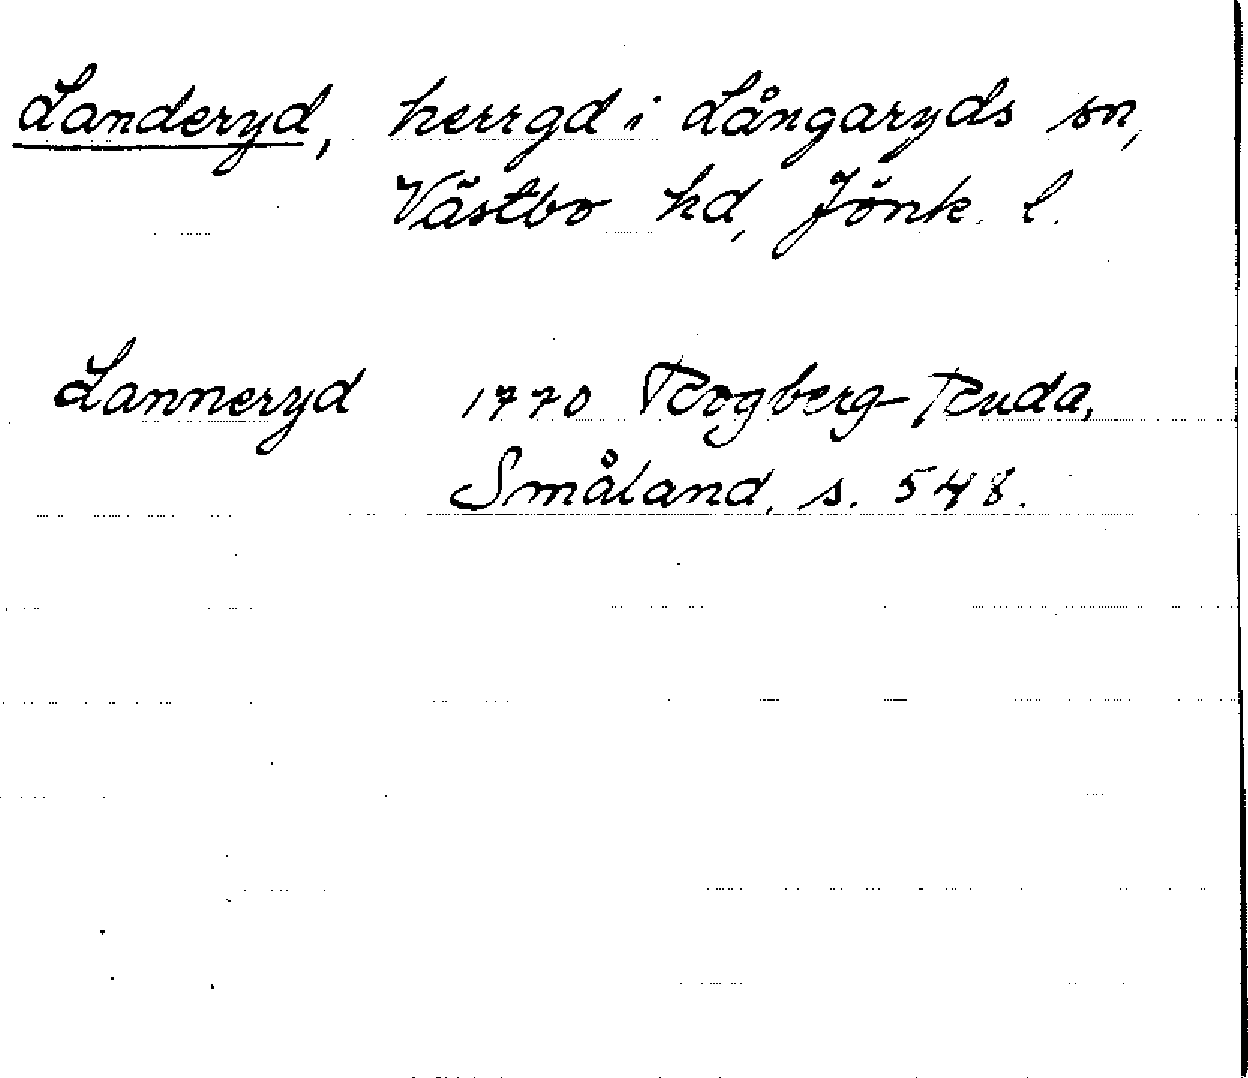 Landeryd, herrgd i Långaryds sn,
Västbo hd, Jönk. l.
Lanneryd 1770 Rogberg-Ruda,
Småland, s. 548.